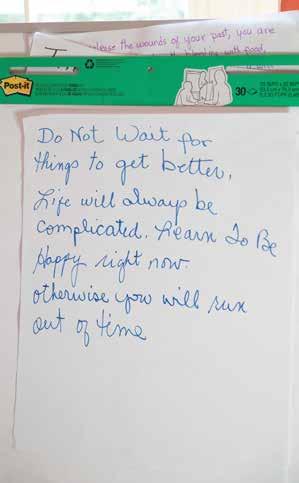 release the wounds of your past, you are
Post-it
30
Do Not Wait for
things to get better,
Life will always be
complicated. Learn To Be
Happy right now.
otherwise you will run
out of time